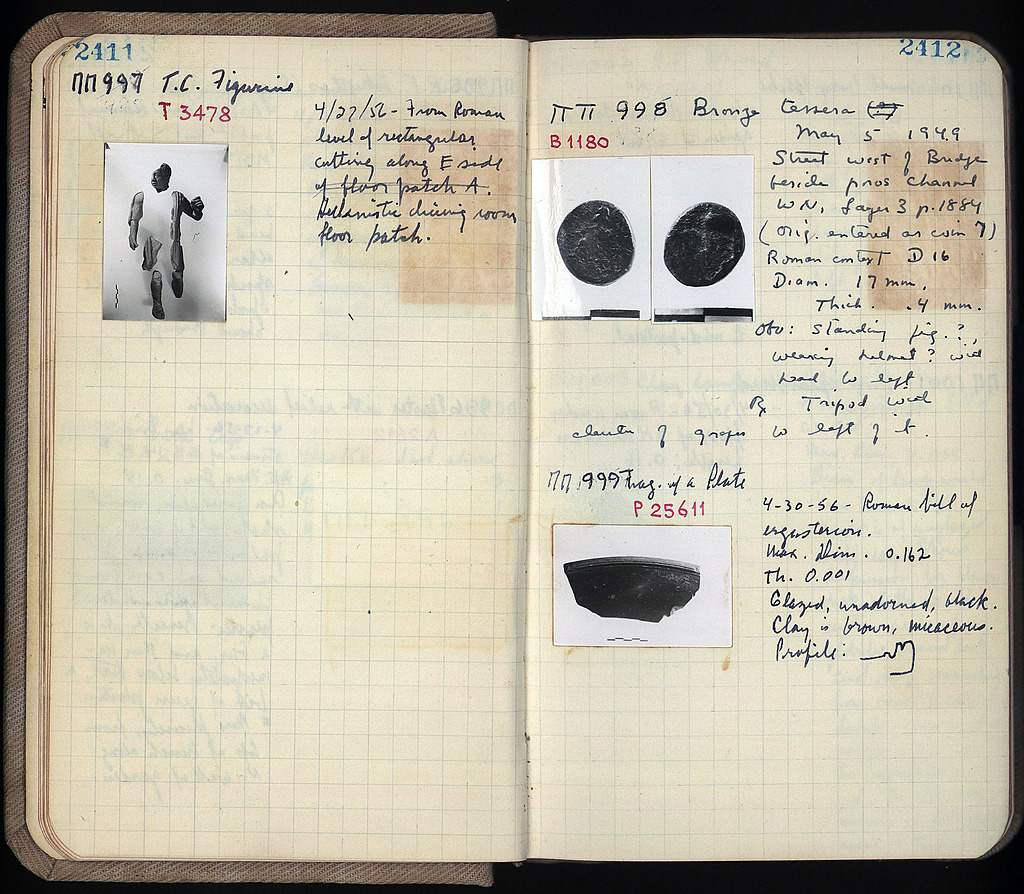 2411
ΠΠ 997 T.C. Figurine
T 3478
4/27/56 - From Roman
level of rectangular
cutting along E side
of floor patch A.
Hellenistic dining room
floor patch.
2412
ΠΠ 998 Bronze tessera
B 1180
May 5 1949
Street west of Bridge
beside poros channel
W.N, Layer 3 p. 1884
(orig. entered as coin 7)
Roman context D 16
Diam. 17 mm.
Thick. .4 mm.
Obv: Standing fig.?,
wearing helmet? with
head to left
R Tripod with
cluster of grapes to left of it.
ΠΠ 999 Frag. of a Plate
P 25611
4-30-56 - Roman fill of
ergasterion.
Max. Dim. 0.162
Th. 0.001
Glazed, unadorned, black.
Clay is brown, micaceous.
Profile: